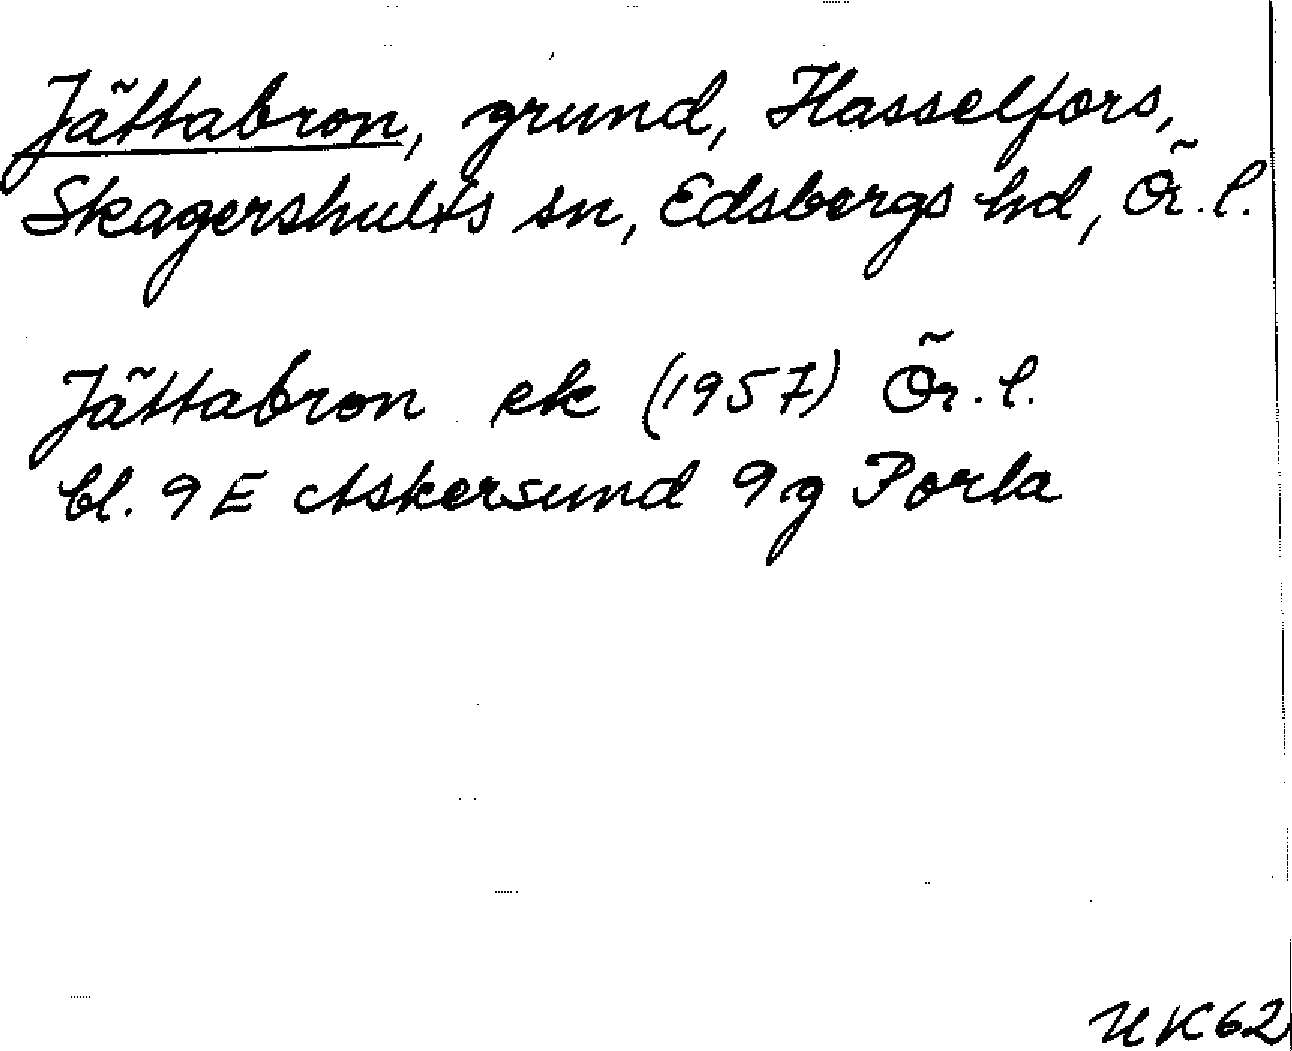 Jättabron, grund, Hasselfors,
Skagershults sn, Edsbergs hd, Ör. l.
Jättabron ek (1957) Ör. l.
bl. 9 E Askersund 9 g Porla
UK62